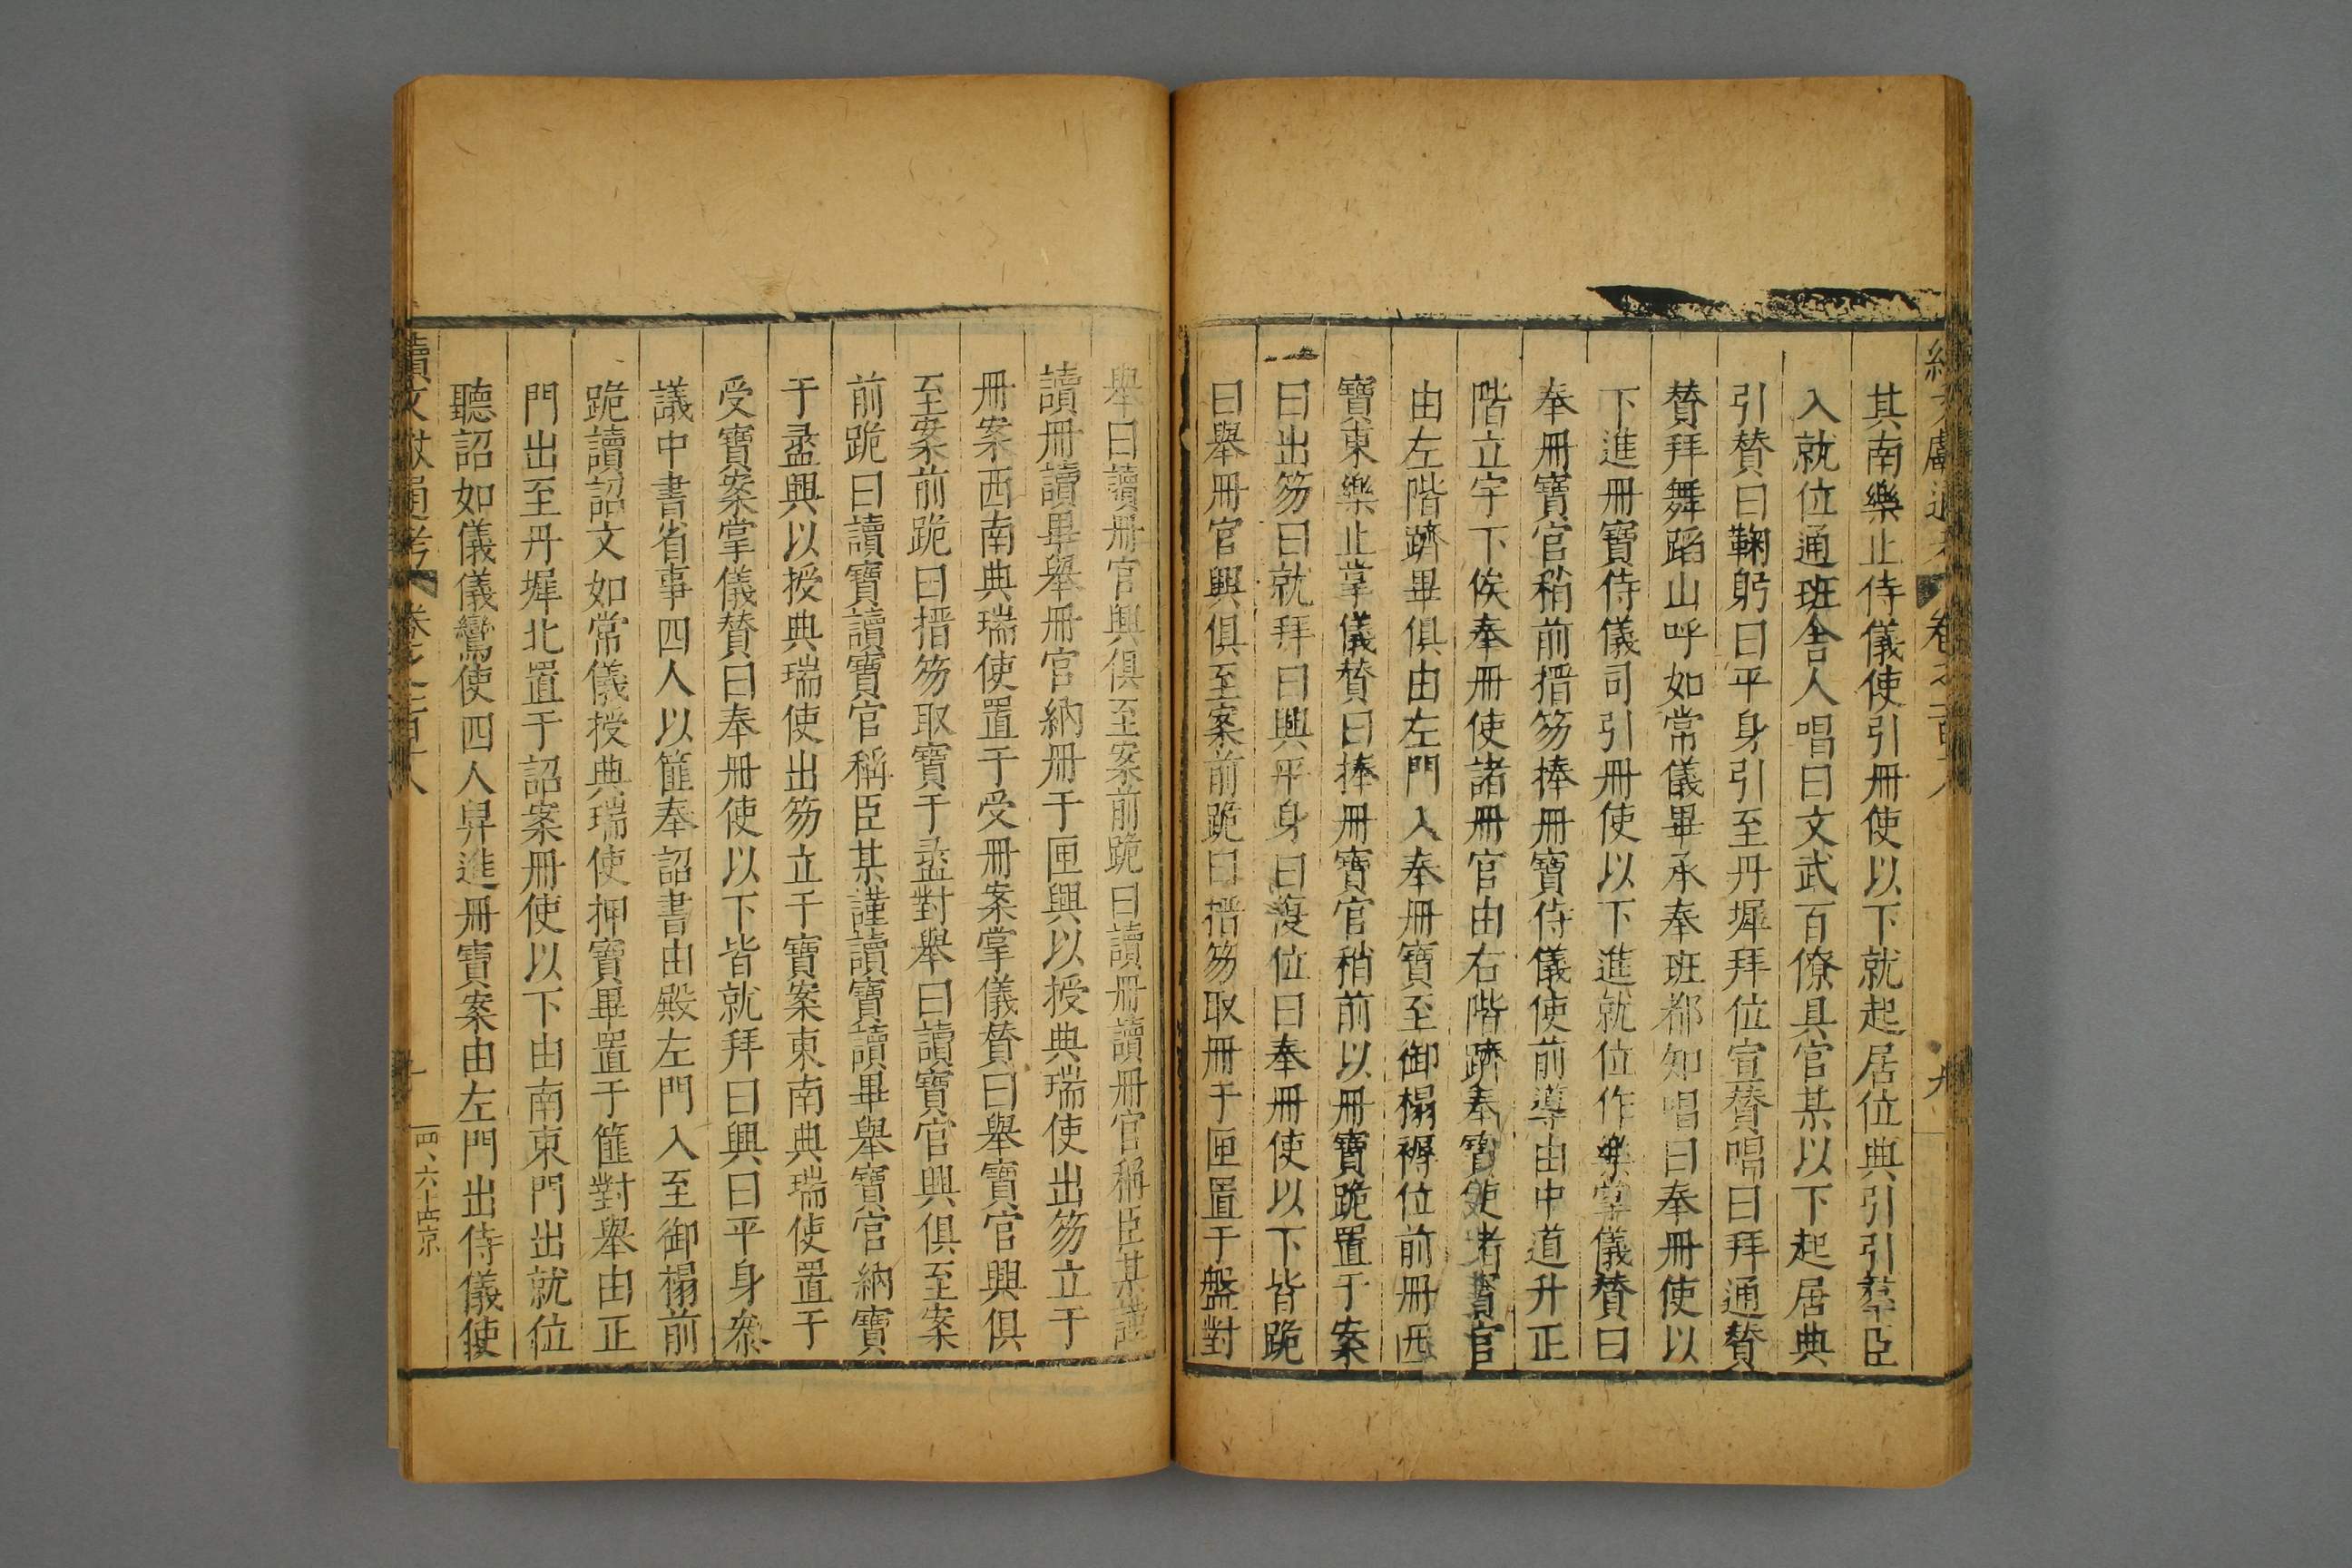 其南樂止侍儀使引冊使以下就起居位典引引羣臣
入就位通班舍人唱曰文武百僚具官某以下起居典
引贊曰鞠躬曰平身引至丹墀拜位宣贊唱曰拜通贊
贊拜舞蹈山呼如常儀畢承奉班都知唱曰奉冊使以
下進冊寶侍儀司引冊使以下進就位作樂掌儀贊曰
奉冊寶官稍前搢笏捧冊寶侍儀使前導由中道升正
階立宇下俟奉冊使諸冊官由右階躋奉寶使諸寶官
由左階躋畢俱由左門入奉冊寶至御榻褥位前冊西
寶東樂止掌儀贊曰捧冊寶官稍前以冊寶跪置于案
曰出笏曰就拜曰興平身曰復位曰奉冊使以下皆跪
曰舉冊官興俱至案前跪曰搢笏取冊于匣置于盤對
舉曰讀冊官興俱至案前跪曰讀冊讀冊官稱臣某謹
讀冊讀畢舉冊官納冊于匣興以授典瑞使出笏立于
冊案西南典瑞使置于受冊案掌儀贊曰舉寶官興俱
至案前跪曰搢笏取寶于盝對舉曰讀寶官興俱至案
前跪曰讀寶讀寶官稱臣某謹讀寶讀畢舉寶官納寶
于盝興以授典瑞使出笏立于寶案東南典瑞使置于
受寶案掌儀贊曰奉冊使以下皆就拜曰興曰平身叅
議中書省事四人以篚奉詔書由殿左門入至御榻前
跪讀詔文如常儀授典瑞使押寶畢置于篚對舉由正
門出至丹墀北置于詔案冊使以下由南東門出就位
聽詔如儀儀鸞使四人舁進冊寶案由左門出侍儀使
續文獻通考 卷之一百十八